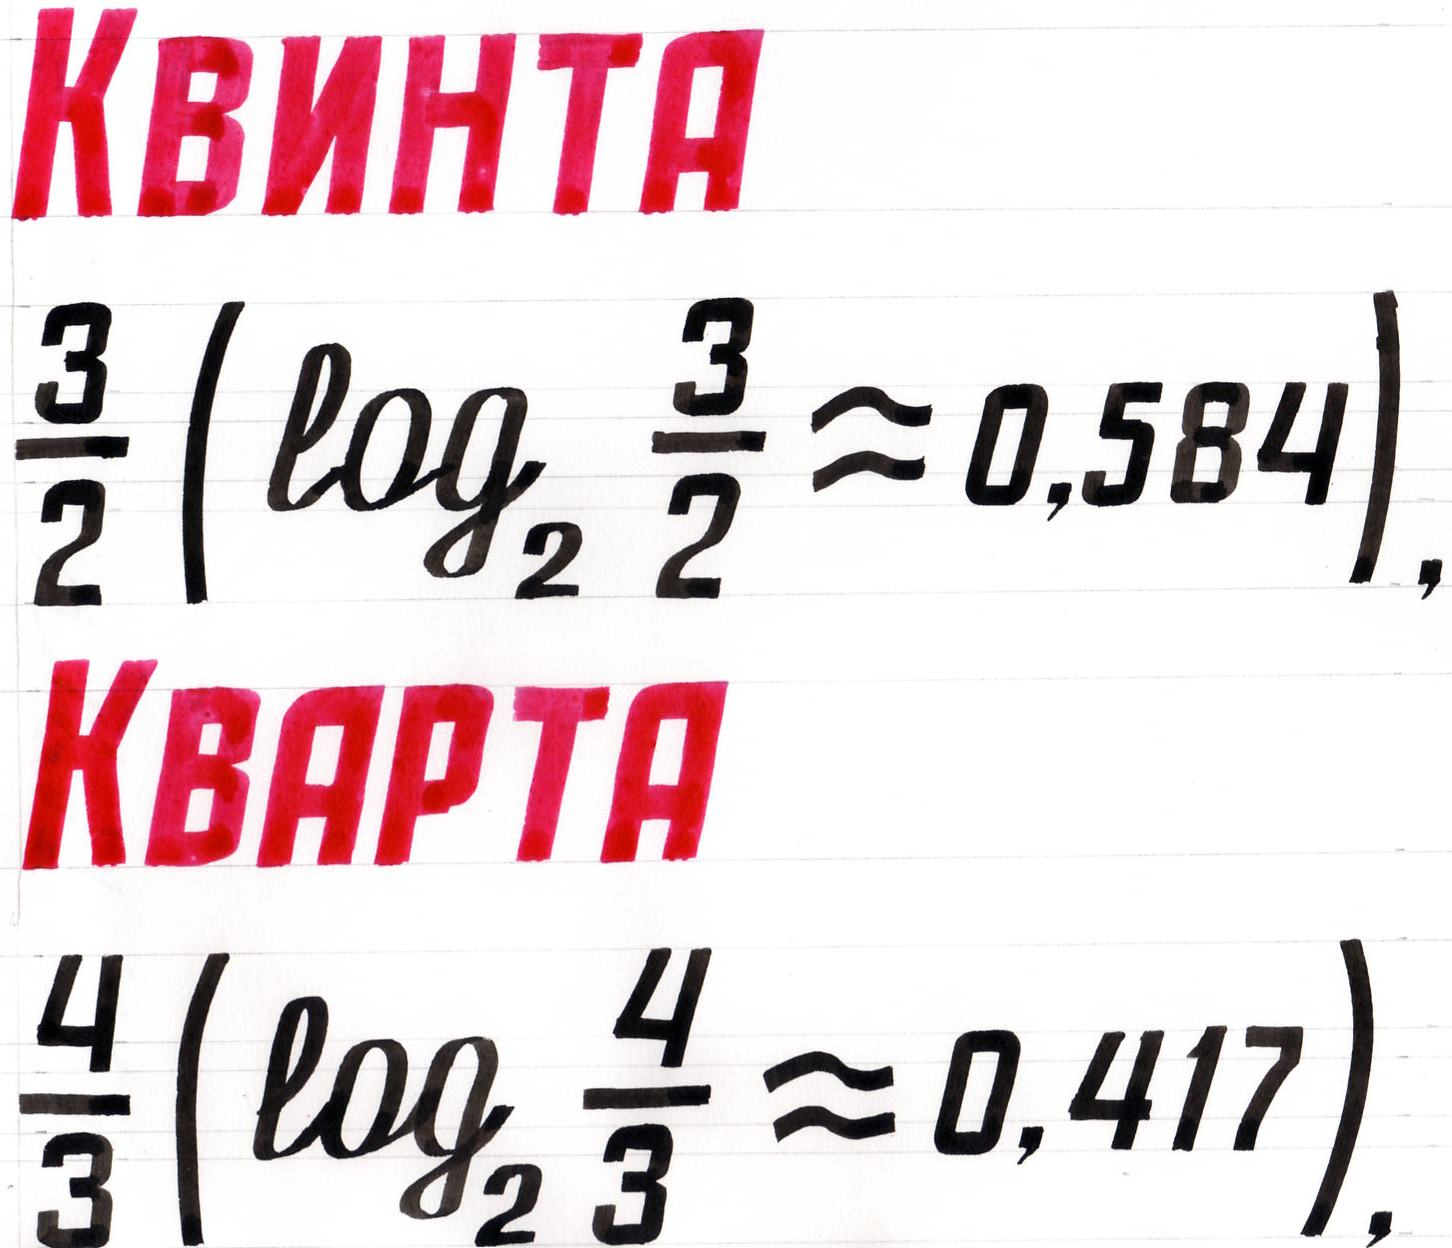 Квинта
3/2 (log₂ 3/2 ≈ 0,584),
Кварта
4/3 (log₂ 4/3 ≈ 0,417),